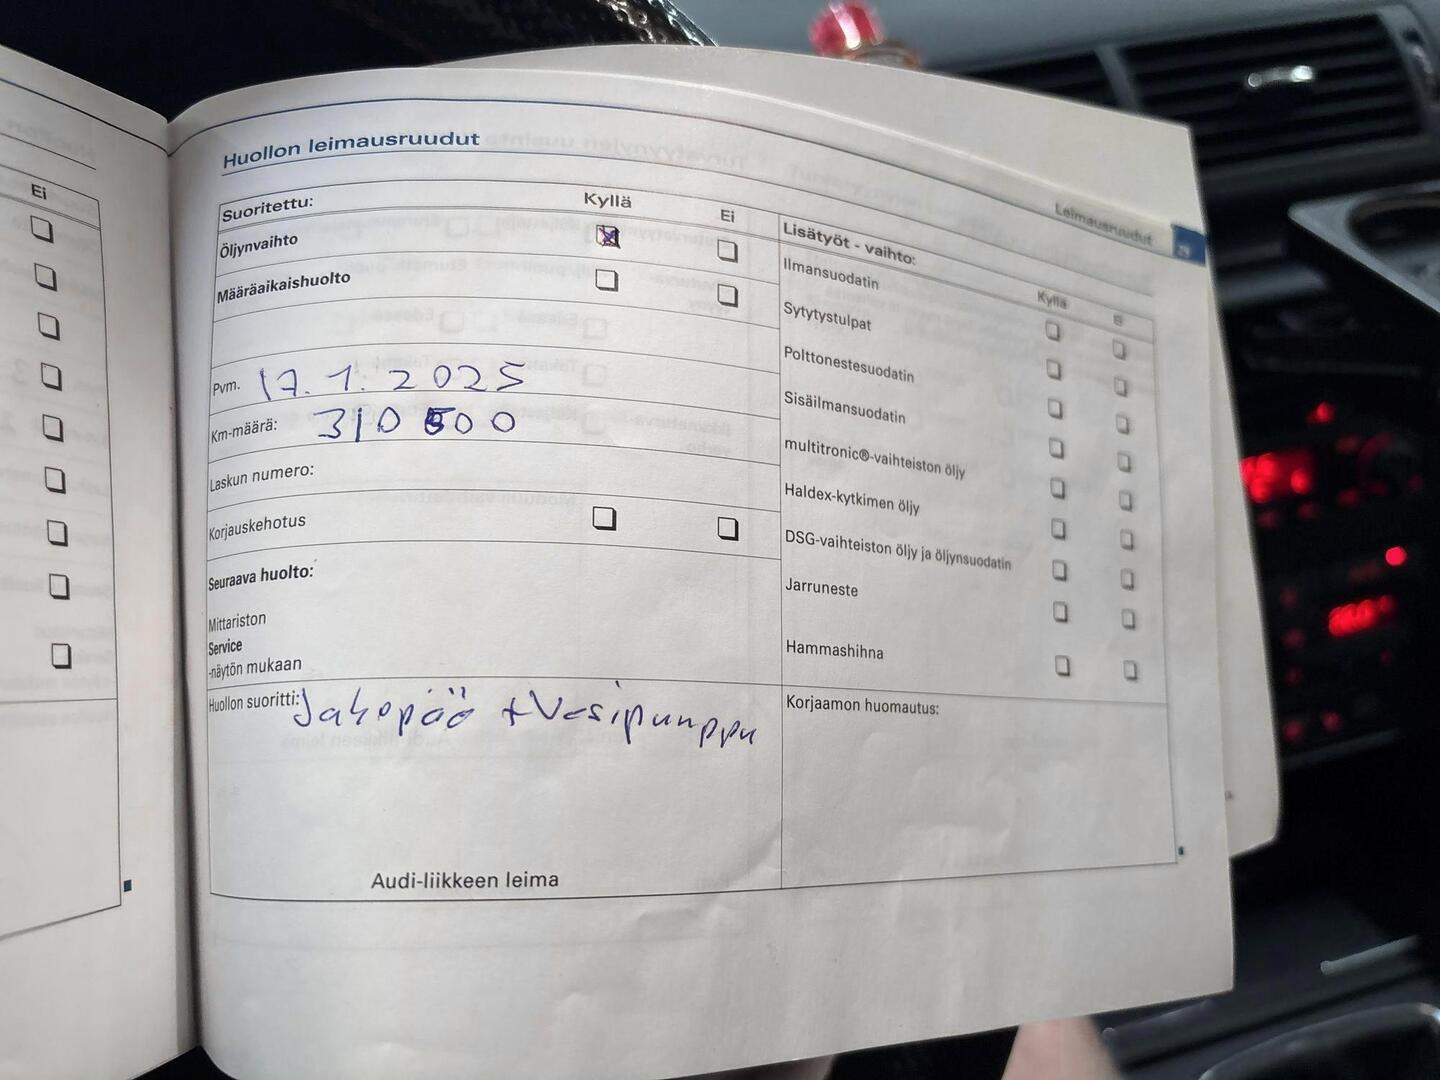 Ei
Huollon leimausruudut
Leimausruudut
Suoritettu: Kyllä Ei
Öljynvaihto
Määräaikaishuolto
Pvm. 17.1.2025
Km-määrä: 310 500
Laskun numero:
Korjauskehotus
Seuraava huolto:
Mittariston
Service
-näytön mukaan
Huollon suoritti: Jakopää + Vesipumppu
Audi-liikkeen leima
Lisätyöt - vaihto: Kyllä Ei
Ilmansuodatin
Sytytystulpat
Polttonestesuodatin
Sisäilmansuodatin
multitronic®-vaihteiston öljy
Haldex-kytkimen öljy
DSG-vaihteiston öljy ja öljynsuodatin
Jarruneste
Hammashihna
Korjaamon huomautus: